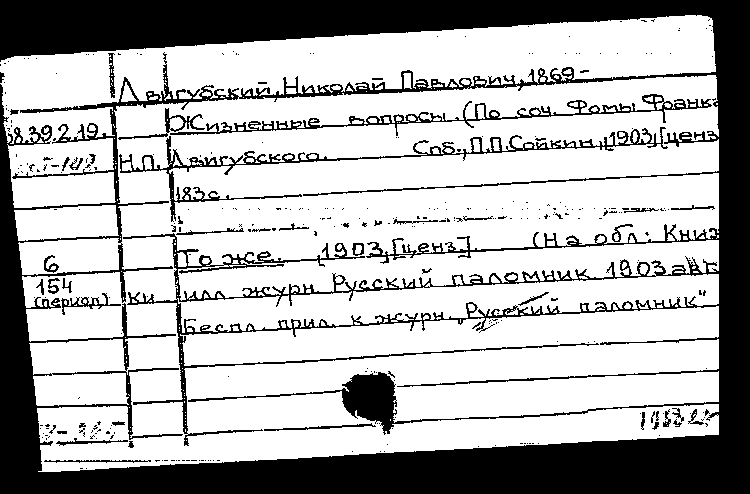 Двигубский, Николай Павлович, 1869-
38.39.2.19. Жизненные вопросы. (По соч. Фомы Франка
Н.П. Двигубского. Спб., П.П. Сойкин, [1903, [ценз
183с.
6 То же. [1903, [ценз.]. (На обл: Книж
154
(период) ки илл журн. Русский паломник 1903 авг
Беспл. прил. к журн. „Русский паломник"